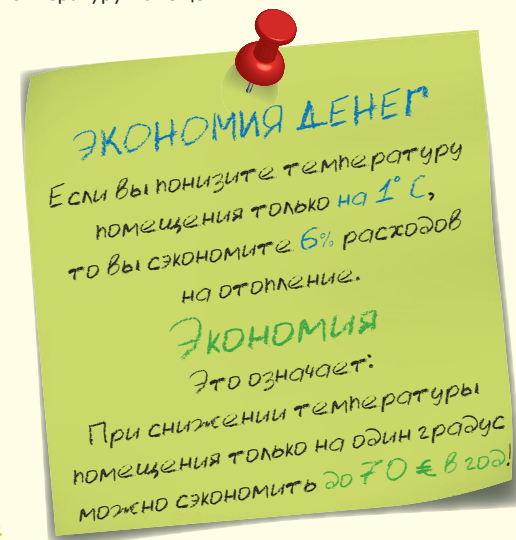 ЭКОНОМИЯ ДЕНЕГ
Если вы понизите температуру
помещения только на 1° С,
то вы сэкономите 6% расходов
на отопление.
Экономия
Это означает:
При снижении температуры
помещения только на один градус
можно сэкономить до 70 € в год!